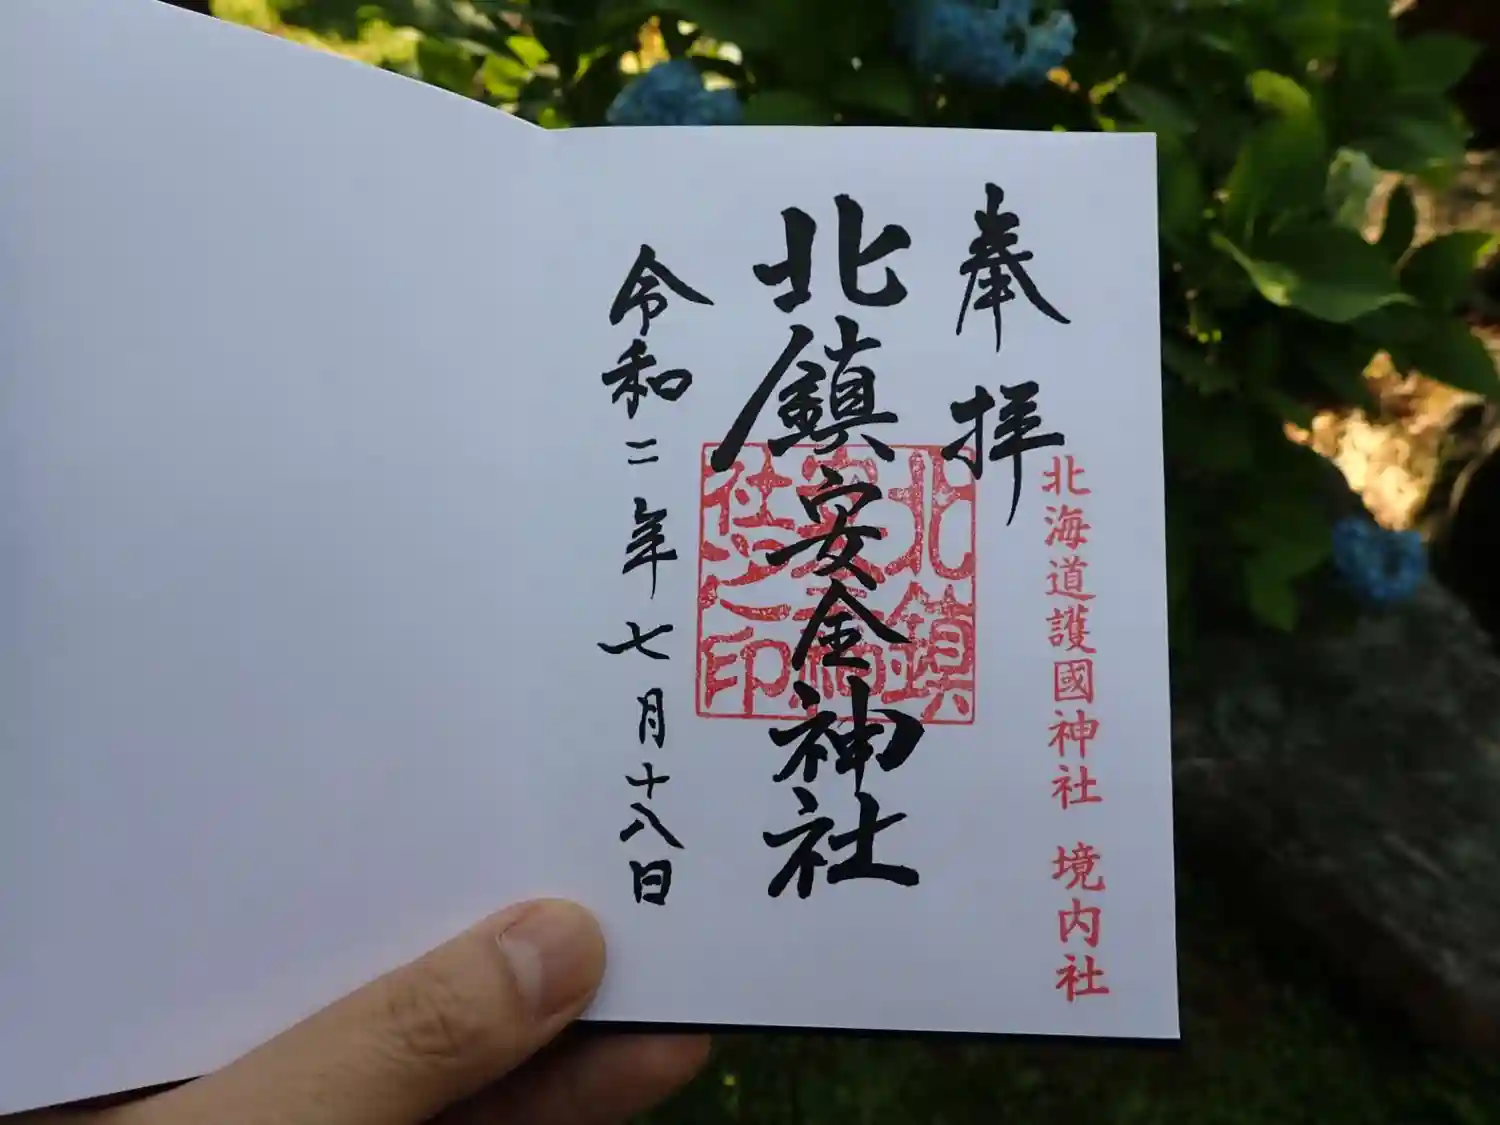 奉拝
北海道護國神社 境内社
北鎮安全神社
北鎮
社之印
令和二年七月十八日